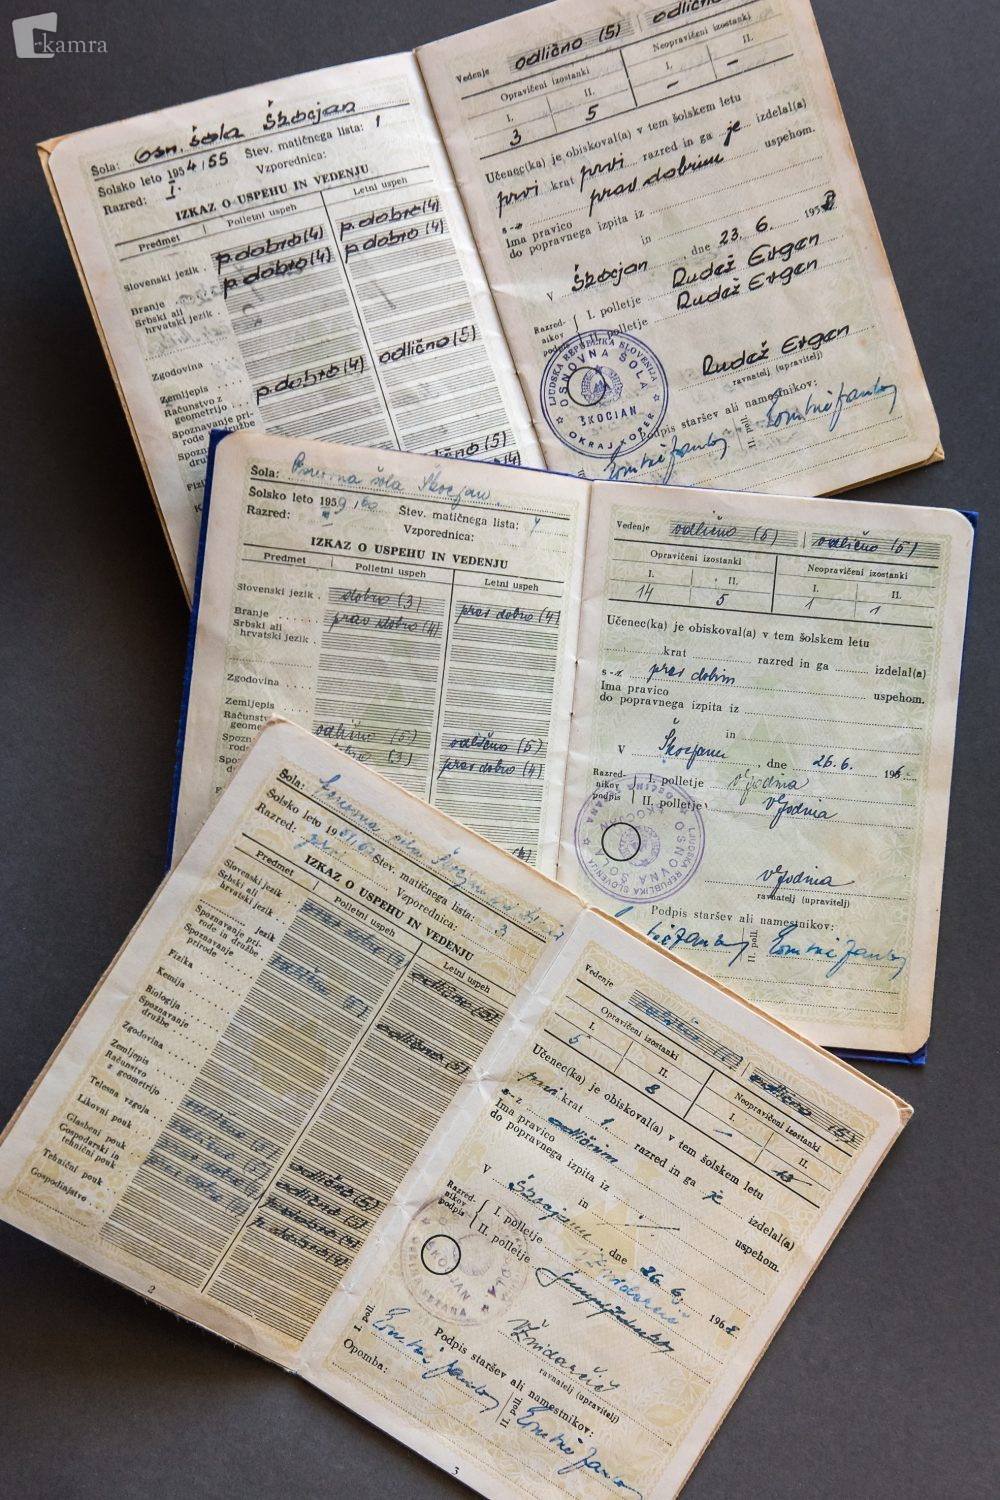 kamra
Šola: Osn. šola Škocjan
Šolsko leto 1954/55 Štev. matičnega lista: 1
Razred: I. Vzporednica:
IZKAZ O USPEHU IN VEDENJU
Predmet Polletni uspeh Letni uspeh
Slovenski jezik p.dobro(4) p.dobro(4)
p.dobro(4) p.dobro(4)
Branje
Srbski ali
hrvatski jezik
Zgodovina
Zemljepis
Računstvo z
geometrijo p.dobro(4) odlično(5)
Spoznavanje pri-
rode in družbe
Vedenje odlično (5) odlično
Opravičeni izostanki Neopravičeni izostanki
I. II. I. II.
3 5 - -
Učenec(ka) je obiskoval(a) v tem šolskem letu
prvi krat prvi razred in ga je izdelal(a)
s-z prav dobrim uspehom.
Ima pravico
do popravnega izpita iz
in
V Škocjan, dne 23. 6. 195
Razred-
nikov
podpis
I. polletje Rudež Evgen
II. polletje Rudež Evgen
Rudež Evgen
ravnatelj (upravitelj)
LJUDSKA REPUBLIKA SLOVENIJA
OSNOVNA ŠOLA
ŠKOCJAN
OKRAJ KOPER
Podpis staršev ali namestnikov:
II. poll.
Šola: Osnovna šola Škocjan
Šolsko leto 1959/60 Štev. matičnega lista: 4
Razred: Vzporednica:
IZKAZ O USPEHU IN VEDENJU
Predmet Polletni uspeh Letni uspeh
Slovenski jezik dobro (3) prav dobro (4)
Branje prav dobro (4)
Srbski ali
hrvatski jezik
Zgodovina
Zemljepis
Računstvo
odlično (5) odlično (5)
dobro (3) prav dobro (4)
Vedenje odlično (5) odlično (5)
Opravičeni izostanki Neopravičeni izostanki
I. II. I. II.
14 5 1 1
Učenec(ka) je obiskoval(a) v tem šolskem letu
krat razred in ga izdelal(a)
s-z prav dobrim uspehom.
Ima pravico
do popravnega izpita iz
in
V Škocjanu, dne 26. 6. 196
Razred-
nikov
podpis
I. polletje
II. polletje
ravnatelj (upravitelj)
LJUDSKA REPUBLIKA SLOVENIJA
OSNOVNA ŠOLA
Podpis staršev ali namestnikov:
II. poll.
Šola: Osnovna šola
Šolsko leto 19 Štev. matičnega lista: 3
Razred: Vzporednica:
IZKAZ O USPEHU IN VEDENJU
Predmet Polletni uspeh Letni uspeh
Slovenski jezik odlično (5)
Srbski ali
hrvatski jezik
Spoznavanje pri-
rode in družbe odlično (5)
Spoznavanje
prirode
Fizika
Kemija
Biologija
Spoznavanje
družbe
Zgodovina
Zemljepis
Računstvo
z geometrijo odlično (5)
Telesna vzgoja odlično (5)
Likovni pouk p.dobro (4)
Glasbeni pouk p.dobro (4)
Gospodarski in
tehnični pouk
Tehnični pouk
Gospodinjstvo
2
Vedenje odlično (5)
Opravičeni izostanki Neopravičeni izostanki
I. II. I. II.
5 8 -
Učenec(ka) je obiskoval(a) v tem šolskem letu
prvi krat 1. razred in ga je izdelal(a)
s-z odličnim uspehom.
Ima pravico
do popravnega izpita iz
in
V Škocjanu dne 26. 6. 196
Razred-
nikov
podpis
I. polletje
II. polletje
Žnidarčič
ravnatelj (upravitelj)
ŠKOCJAN
Podpis staršev ali namestnikov:
I. poll.
II. poll.
Opomba:
3